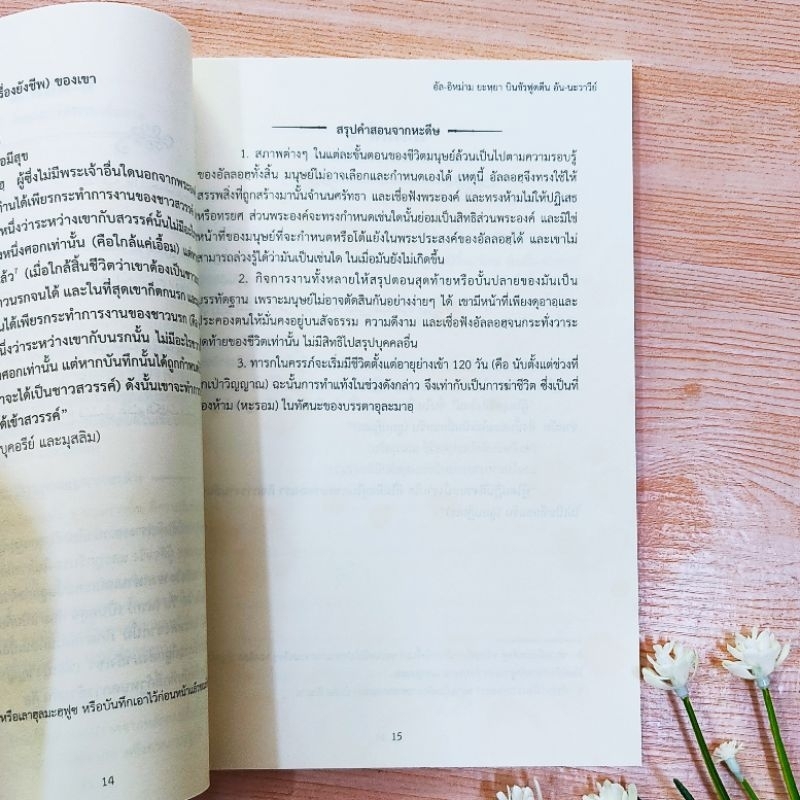 รื่องยังชีพ) ของเขา
อมีสุข
ผู้ซึ่งไม่มีพระเจ้าอื่นใดนอกจากพระองค์
ท่านได้เพียรกระทำการงานของชาวสวรรค์
หนึ่งว่าระหว่างเขากับสวรรค์นั้นไม่มีอะไร
งหนึ่งศอกเท่านั้น (คือใกล้แค่เอื้อม) แต่
ล้ว7 (เมื่อใกล้สิ้นชีวิตว่าเขาต้องเป็นชาว
าวนรกจนได้ และในที่สุดเขาก็ตกนรก และ
นได้เพียรกระทำการงานของชาวนรก
หนึ่งว่าระหว่างเขากับนรกนั้น ไม่มีอะไร
งศอกเท่านั้น แต่หากบันทึกนั้นได้ถูกกำหนด
าจะได้เป็นชาวสวรรค์) ดังนั้นเขาจะทำการ
ด้เข้าสวรรค์"
บุคอรีย์ และมุสลิม)
หรือเลาฮุลมะฮฟูซ หรือบันทึกเอาไว้ก่อนหน้าแล้ว
14
อัล-อิหม่าม ยะหฺยา บินชัรฟุดดีน อัน-นะวาวีย์
สรุปคำสอนจากหะดีษ
1. สภาพต่างๆ ในแต่ละขั้นตอนของชีวิตมนุษย์ล้วนเป็นไปตามความรอบรู้
ของอัลลอฮฺทั้งสิ้น มนุษย์ไม่อาจเลือกและกำหนดเองได้ เหตุนี้ อัลลอฮฺจึงทรงใช้ให้
สรรพสิ่งที่ถูกสร้างมานั้นจำนนศรัทธา และเชื่อฟังพระองค์ และทรงห้ามไม่ให้ปฏิเสธ
หรือทรยศ ส่วนพระองค์จะทรงกำหนดเช่นใดนั้นย่อมเป็นสิทธิส่วนพระองค์ และมิใช่
หน้าที่ของมนุษย์ที่จะกำหนดหรือโต้แย้งในพระประสงค์ของอัลลอฮฺได้ และเขาไม่
สามารถล่วงรู้ได้ว่ามันเป็นเช่นใด ในเมื่อมันยังไม่เกิดขึ้น
2. กิจการงานทั้งหลายให้สรุปตอนสุดท้ายหรือบั้นปลายของมันเป็น
บรรทัดฐาน เพราะมนุษย์ไม่อาจตัดสินกันอย่างง่ายๆ ได้ เขามีหน้าที่เพียงดุอาอฺและ
ประคองตนให้มั่นคงอยู่บนสัจธรรม ความดีงาม และเชื่อฟังอัลลอฮฺจนกระทั่งวาระ
ดท้ายของชีวิตเท่านั้น ไม่มีสิทธิไปสรุปบุคคลอื่น
3. ทารกในครรภ์จะเริ่มมีชีวิตตั้งแต่อายุย่างเข้า 120 วัน (คือ นับตั้งแต่ช่วงที่
กเป่าวิญญาณ) ฉะนั้นการทำแท้งในช่วงดังกล่าว จึงเท่ากับเป็นการฆ่าชีวิต ซึ่งเป็นที่
องห้าม (หะรอม) ในทัศนะของบรรดาอุละมาอฺ
15